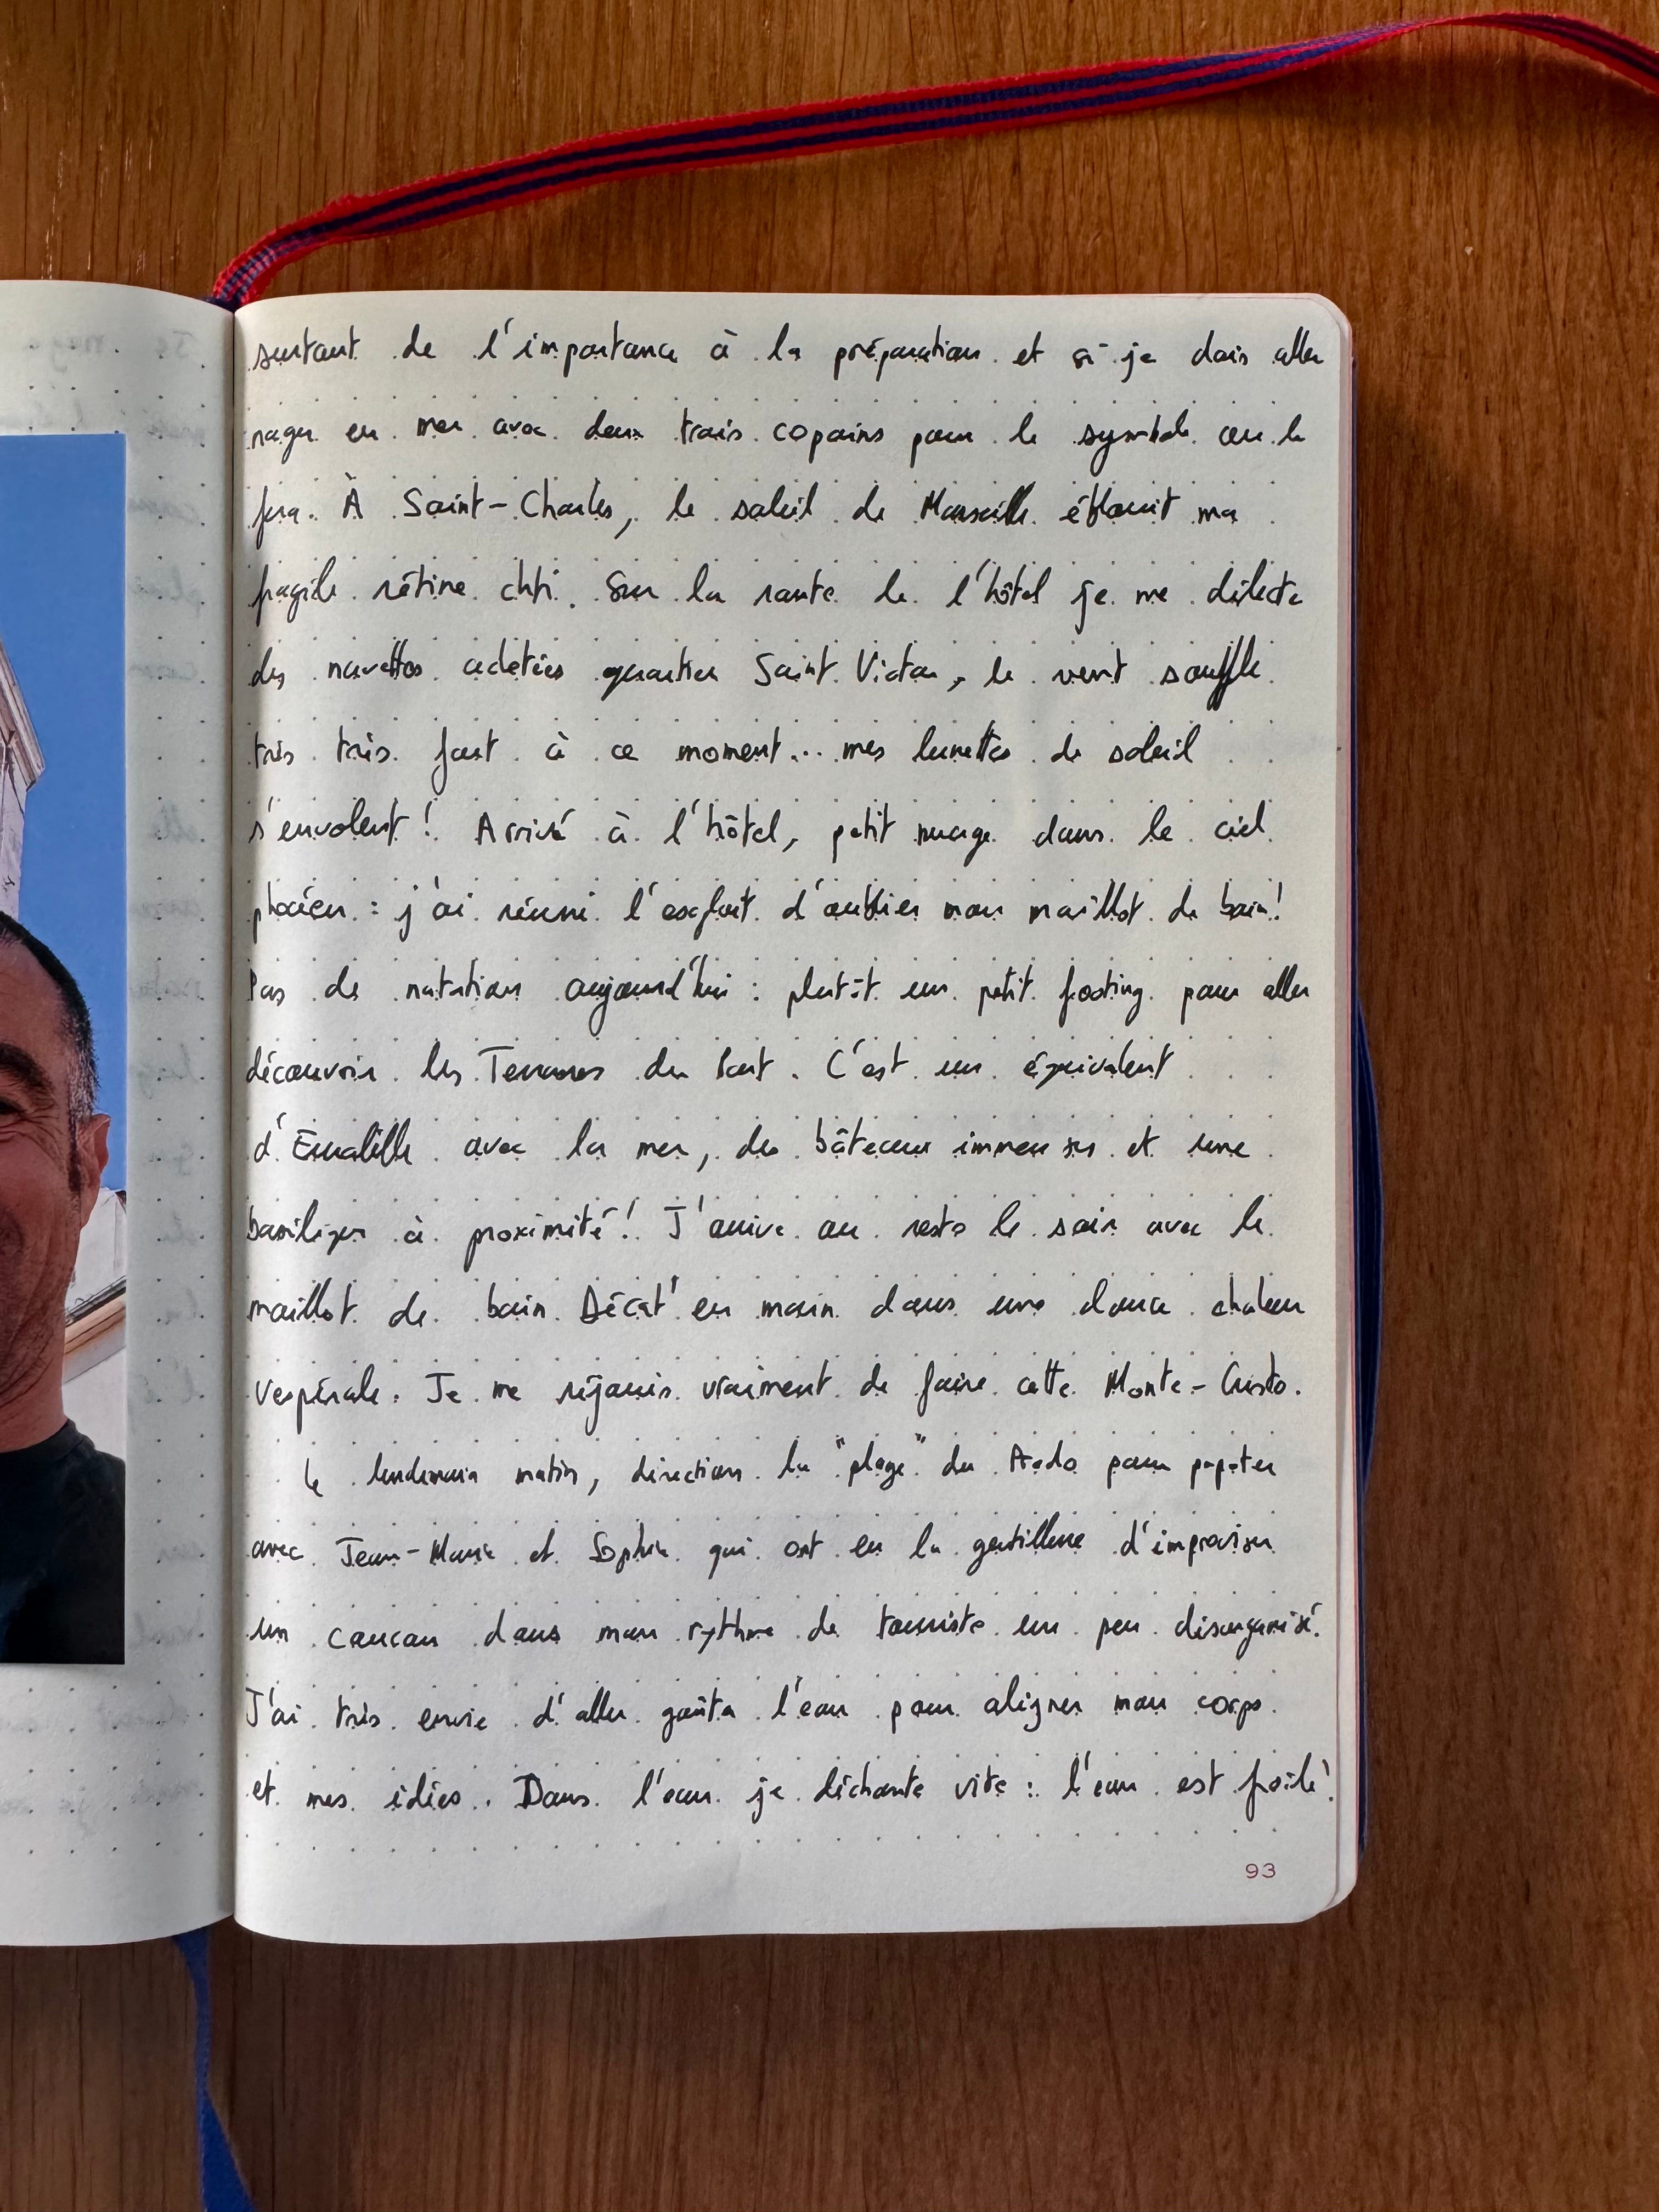 surtout de l'importance à la préparation et si je dois aller
nager en mer avec deux trois copains pour le symbole on le
fera. À Saint-Charles, le soleil de Marseille éblouit ma
fragile rétine chti. Sur la route de l'hôtel je me délecte
des navettes achetées quartier Saint Victor, le vent souffle
très très fort à ce moment... mes lunettes de soleil
s'envolent ! Arrivé à l'hôtel, petit nuage dans le ciel
phocéen : j'ai réussi l'exploit d'oublier mon maillot de bain !
Pas de natation aujourd'hui : plutôt un petit footing pour aller
découvrir les Terrasses du Port. C'est un équivalent
d'Euralille avec la mer, des bâteaux immenses et une
basilique à proximité ! J'arrive au resto le soir avec le
maillot de bain Décat' en main dans une douce chaleur
vespérale. Je me réjouis vraiment de faire cette Monte-Cristo.
Le lendemain matin, direction la "plage" du Prado pour papoter
avec Jean-Marie et Sophie qui ont eu la gentillesse d'improviser
un cancan dans mon rythme de touriste un peu désorganisé.
J'ai très envie d'aller goûter l'eau pour aligner mon corps
et mes idées. Dans l'eau je déchante vite : l'eau est froide !
93